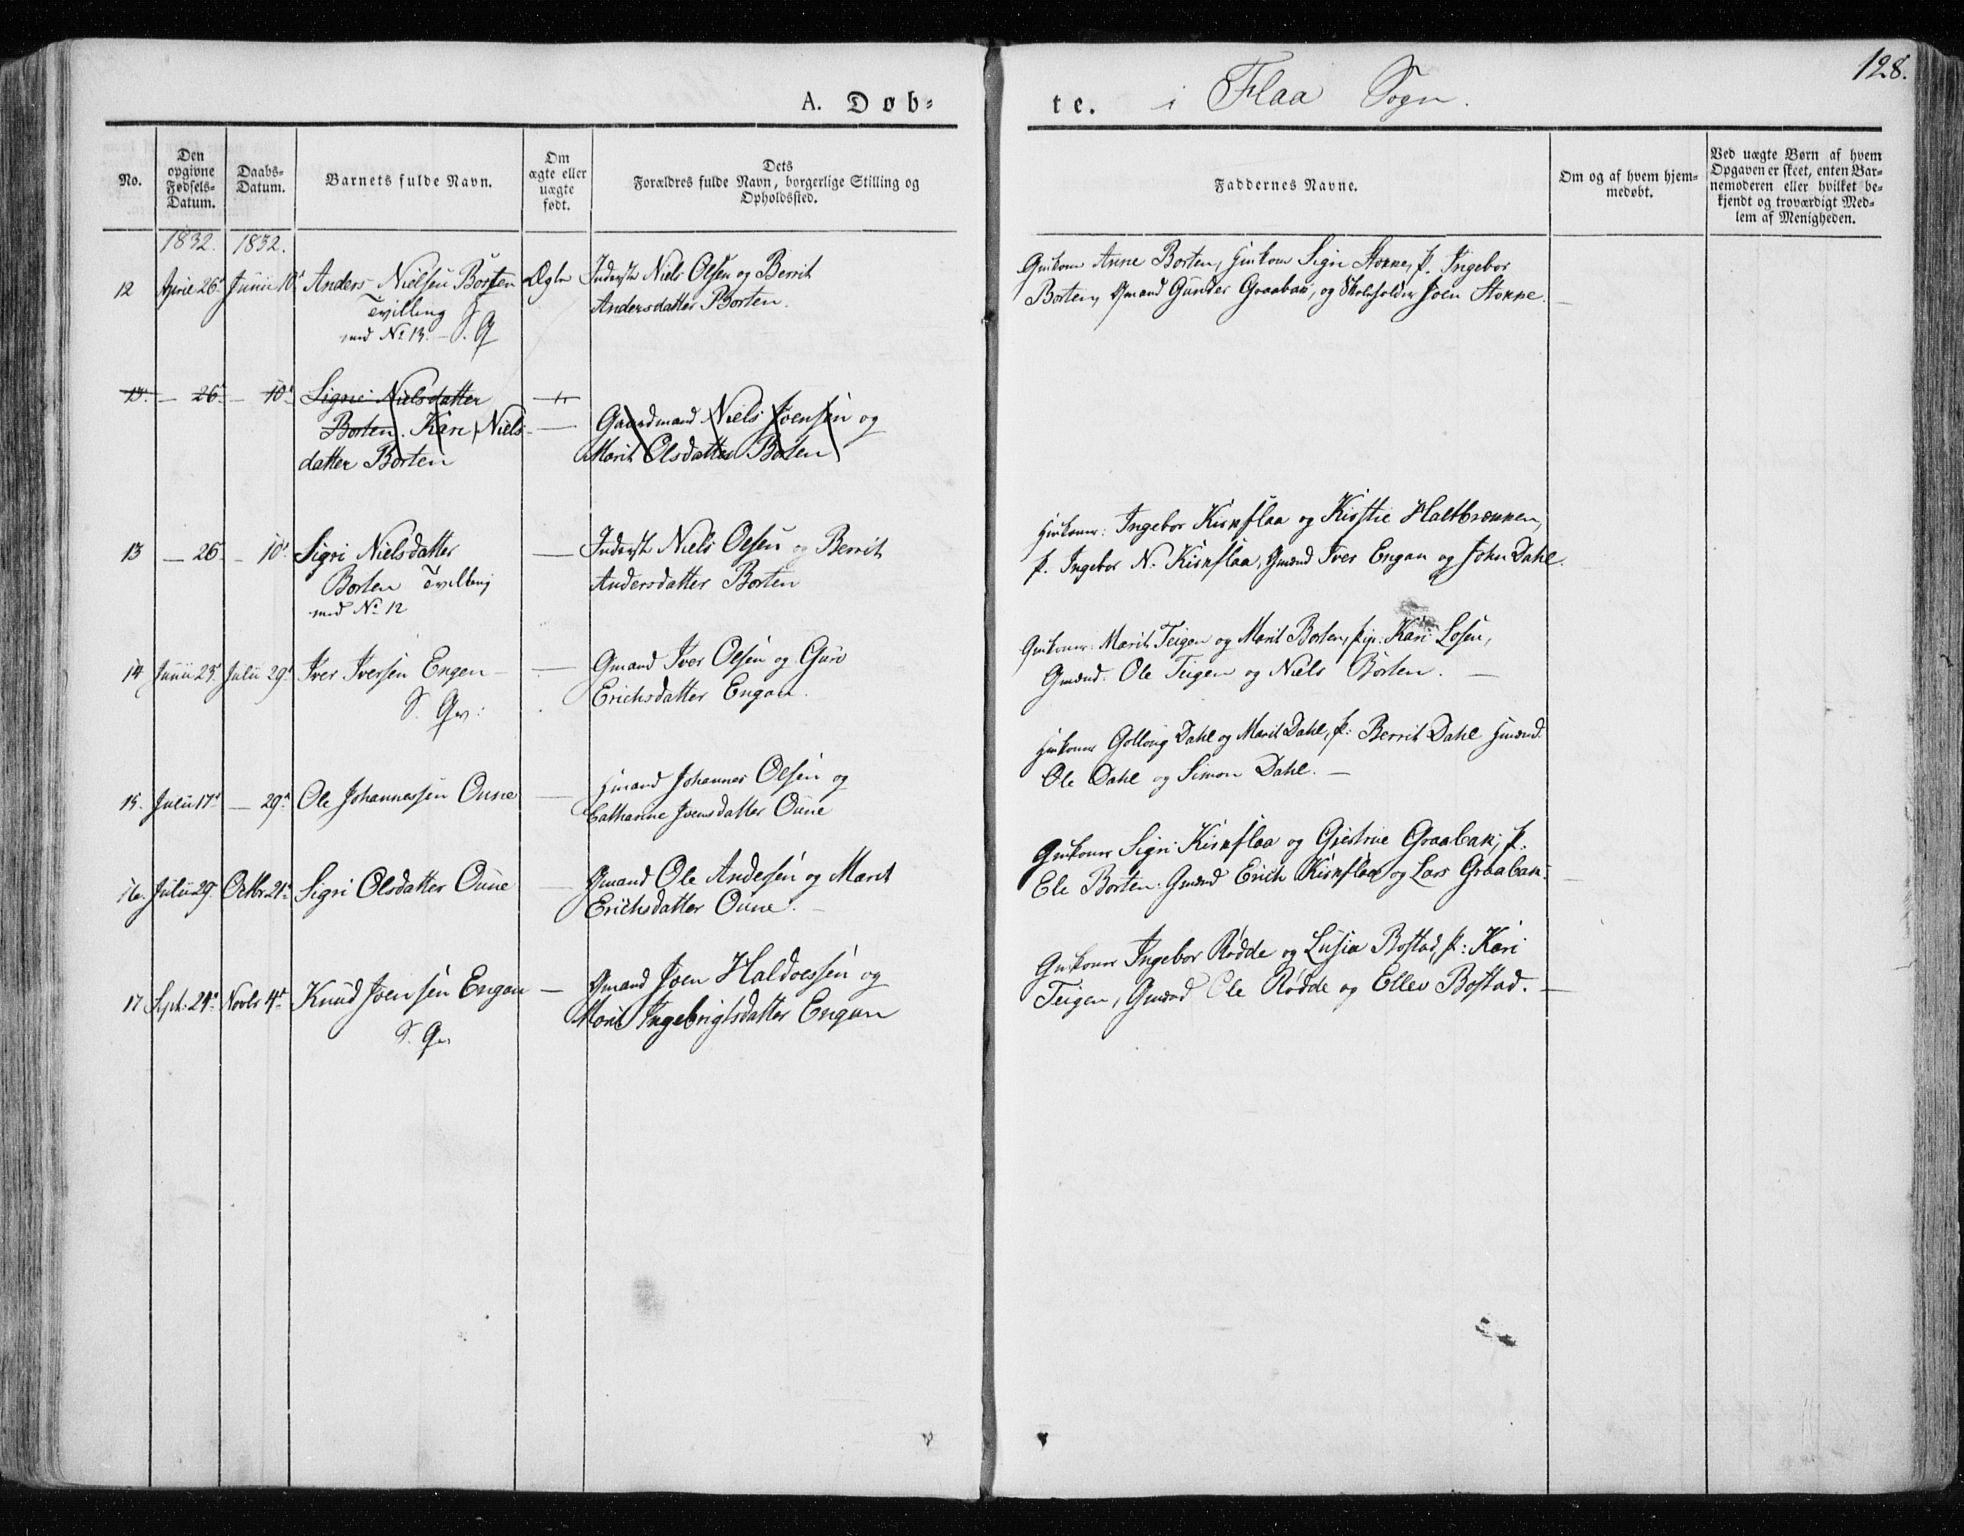 128.
A. Døb-
te. i Flaa Sogn.
No.
Den opgivne Fødsels-Datum.
Daabs-Datum.
Barnets fulde Navn.
Om ægte eller uægte født.
Dets
Forældres fulde Navn, borgerlige Stilling og
Opholdssted.
Faddernes Navne.
Om og af hvem hjem-
medøbt.
Ved uægte Børn af hvem
Opgaven er skeet, enten Bar-
nemoderen eller hvilket be-
kjendt og troværdigt Med-
lem af Menigheden.
1832. 1832.
12 April 26. Junii 10d Anders Nielsen Borten Ægte Inderst Niels Olsen og Berrit
Tvilling Andersdatter Borten.
med No 13. - S. G
Gmkone Anne Borten, Hmkone Sigri Stokke, P. Ingebor
Borten, Gmand Gunder Graabak, og Skoleholder Joen Stokke.
13. — 26. — 10d Signe Nielsdatter
Borten. Kari Niels- — Gaardmand Niels Joensen og
datter Borten Marit Olsdatter Borten
13 — 26. — 10d Sigri Nielsdatter — Inderst Niels Olsen og Berrit
Borten Tvilling Andersdatter Borten
med No 12
Hmkoner: Ingebor Kirkflaa og Kirstie Haltbrækken,
P. Ingebor N. Kirkflaa, Gmænd Iver Engan og John Dahl.
14 Junii 23d Julii 29d Iver Iversen Engen — Gmand Iver Olsen og Guro
S. Gr: Erichsdatter Engan.
Gmkoner: Marit Teigen og Marit Borten, Pige Kari Losen,
Gmænd. Ole Teigen og Niels Borten. —
15. Julii 17d — 29d Ole Johannessen Oune — Hmand Johannes Olsen og
Cathrine Joensdatter Oune
Hmkoner Gollaug Dahl og Marit Dahl, P: Berrit Dahl Hmænd.
Ole Dahl og Simon Dahl. —
16. Julii 29. Octbr 21d Sigri Olsdatter Oune — Gmand Ole Andersen og Marit
Erichsdatter Oune. —
Gmkoner Sigri Kirkflaa og Gjertrue Graabak, P.
Ele Borten. Gmænd Erich Kirkflaa og Lars Graabak.
17 Sept: 24d Novbr 4d Knud Joensen Engan — Gmand Joen Haldorssen og
S. Gr Marit Ingebrigtsdatter Engan
Gmkoner Ingebor Rødde og Lusia Bostad, P: Kari
Teigen, Gmænd Ole Rødde og Ellev Bostad. —